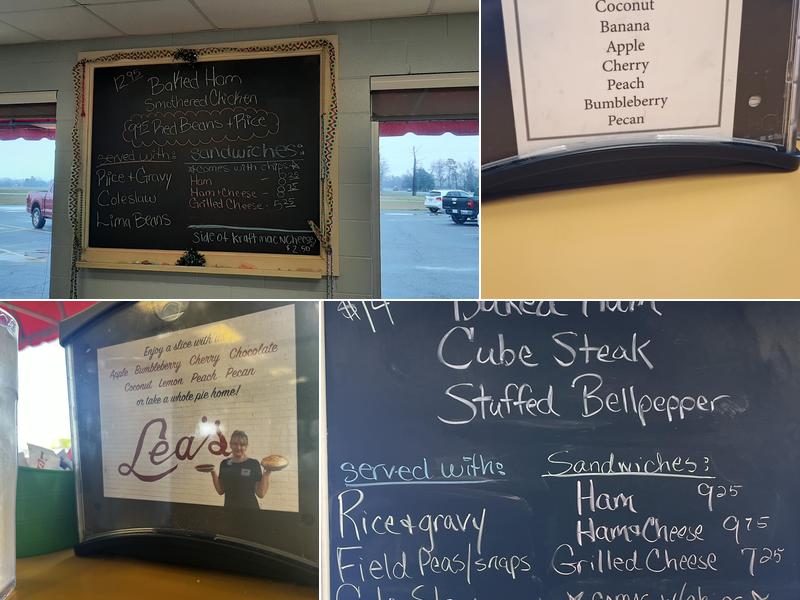 12.95 Baked Ham
Smothered Chicken
9.95 Red Beans + Rice
served with:
Rice + Gravy
Coleslaw
Lima Beans
Sandwiches:
*comes with chips*
Ham 8.25
Ham+Cheese -
Grilled Cheese - 5.25
Side of Kraft mac N Cheese
$2.50
Coconut
Banana
Apple
Cherry
Peach
Bumbleberry
Pecan
Enjoy a slice with
Apple Bumbleberry Cherry Chocolate
Coconut Lemon Peach Pecan
or take a whole pie home!
Lea's
$14 Baked Ham
Cube Steak
Stuffed Bellpepper
served with:
Rice + gravy
Field Peas/snaps
Sandwiches:
Ham 9.25
Ham+Cheese 9.75
Grilled Cheese 7.25